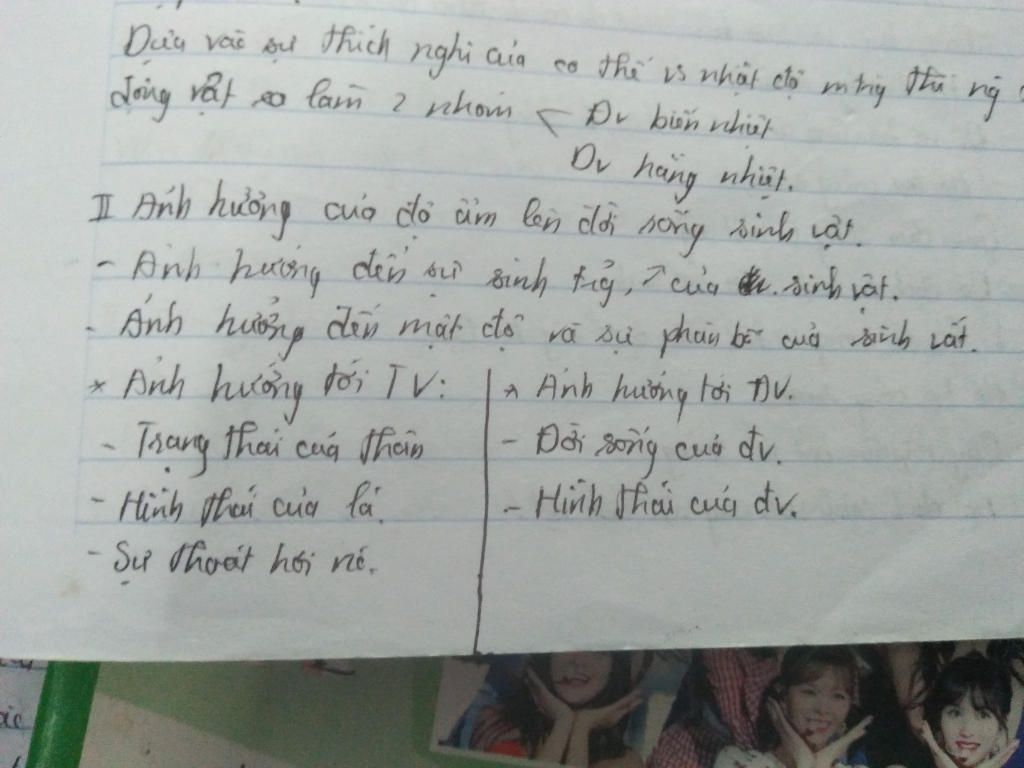 Dựa vào sự thích nghi của cơ thể vs nhiệt độ mtrg thì ng
động vật làm 2 nhóm < Đv biến nhiệt
Đv hằng nhiệt.
II Ảnh hưởng của độ ẩm lên đời sống sinh vật.
- Ảnh hưởng đến sự sinh trg, ↗ của sinh vật.
- Ảnh hưởng đến mật độ và sự phân bố của sinh vật.
* Ảnh hưởng tới TV:
- Trạng thái của thân
- Hình thái của lá.
- Sự thoát hơi nc.
* Ảnh hưởng tới ĐV.
- Đời sống của đv.
- Hình thái của đv.